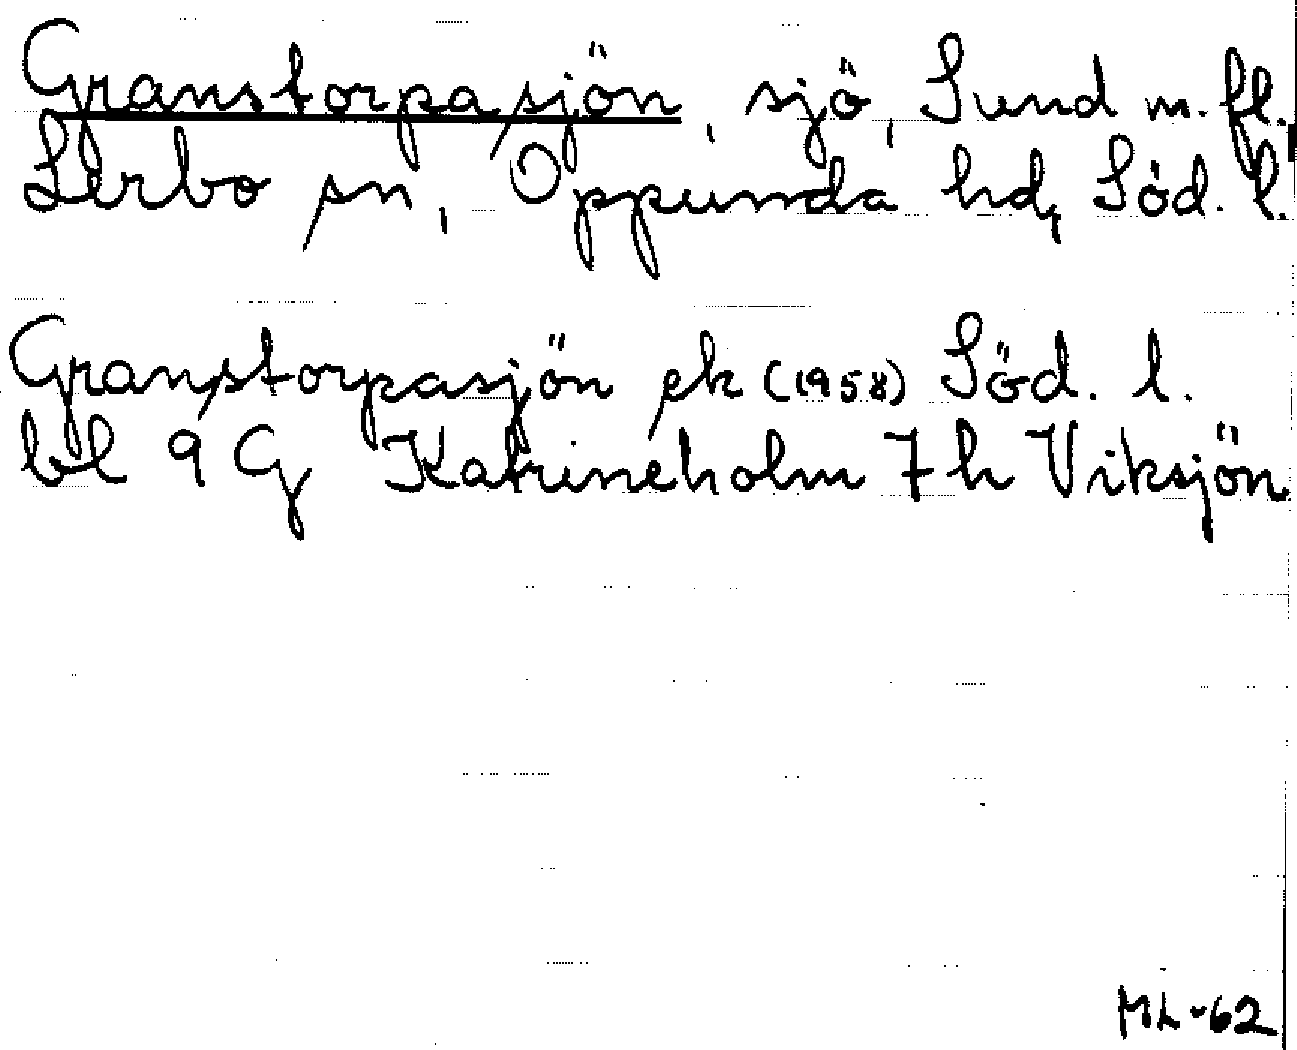 Granstorpasjön, sjö, Sund m. fl.,
Lerbo sn, Oppunda hd, Söd. l.
Granstorpasjön ek (1958) Söd. l.
bl 9 G Katrineholm 7 h Viksjön
ML-62